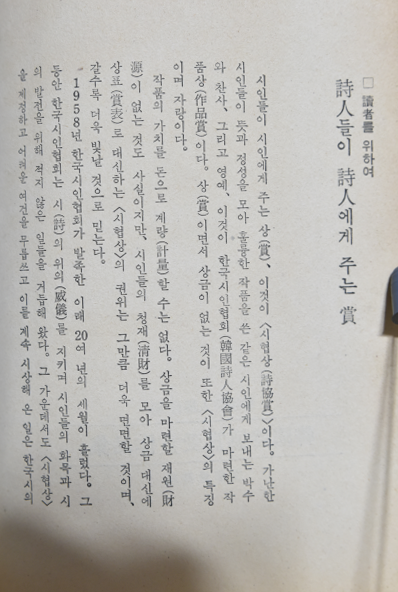 □ 讀者를 위하여
詩人들이 詩人에게 주는 賞
시인들이 시인에게 주는 상(賞)、이것이 〈시협상(詩協賞)〉이다。가난한
시인들이 뜻과 정성을 모아 훌륭한 작품을 쓴 같은 시인에게 보내는 박수
와 찬사、그리고 영예、이것이 한국시인협회(韓國詩人協會)가 마련한 작
품상(作品賞)이다。상(賞)이면서 상금이 없는 것이 또한 〈시협상〉의 특징
이며 자랑이다。
작품의 가치를 돈으로 계량(計量)할 수는 없다。상금을 마련할 재원(財
源)이 없는 것도 사실이지만、시인들의 청재(清財)를 모아 상금 대신에
상표(賞表)로 대신하는 〈시협상〉의 권위는 그만큼 더욱 면면할 것이며、
갈수록 더욱 빛날 것으로 믿는다。
1958년 한국시인협회가 발족한 이래 20여 년의 세월이 흘렀다。그
동안 한국시인협회는 시(詩)의 위의(威儀)를 지키며 시인들의 화목과 시
의 발전을 위해 적지 않은 일들을 거듭해 왔다。그 가운데서도 〈시협상〉
을 제정하고 어려운 여건을 무릅쓰고 이를 계속 시상해 온 일은 한국시의